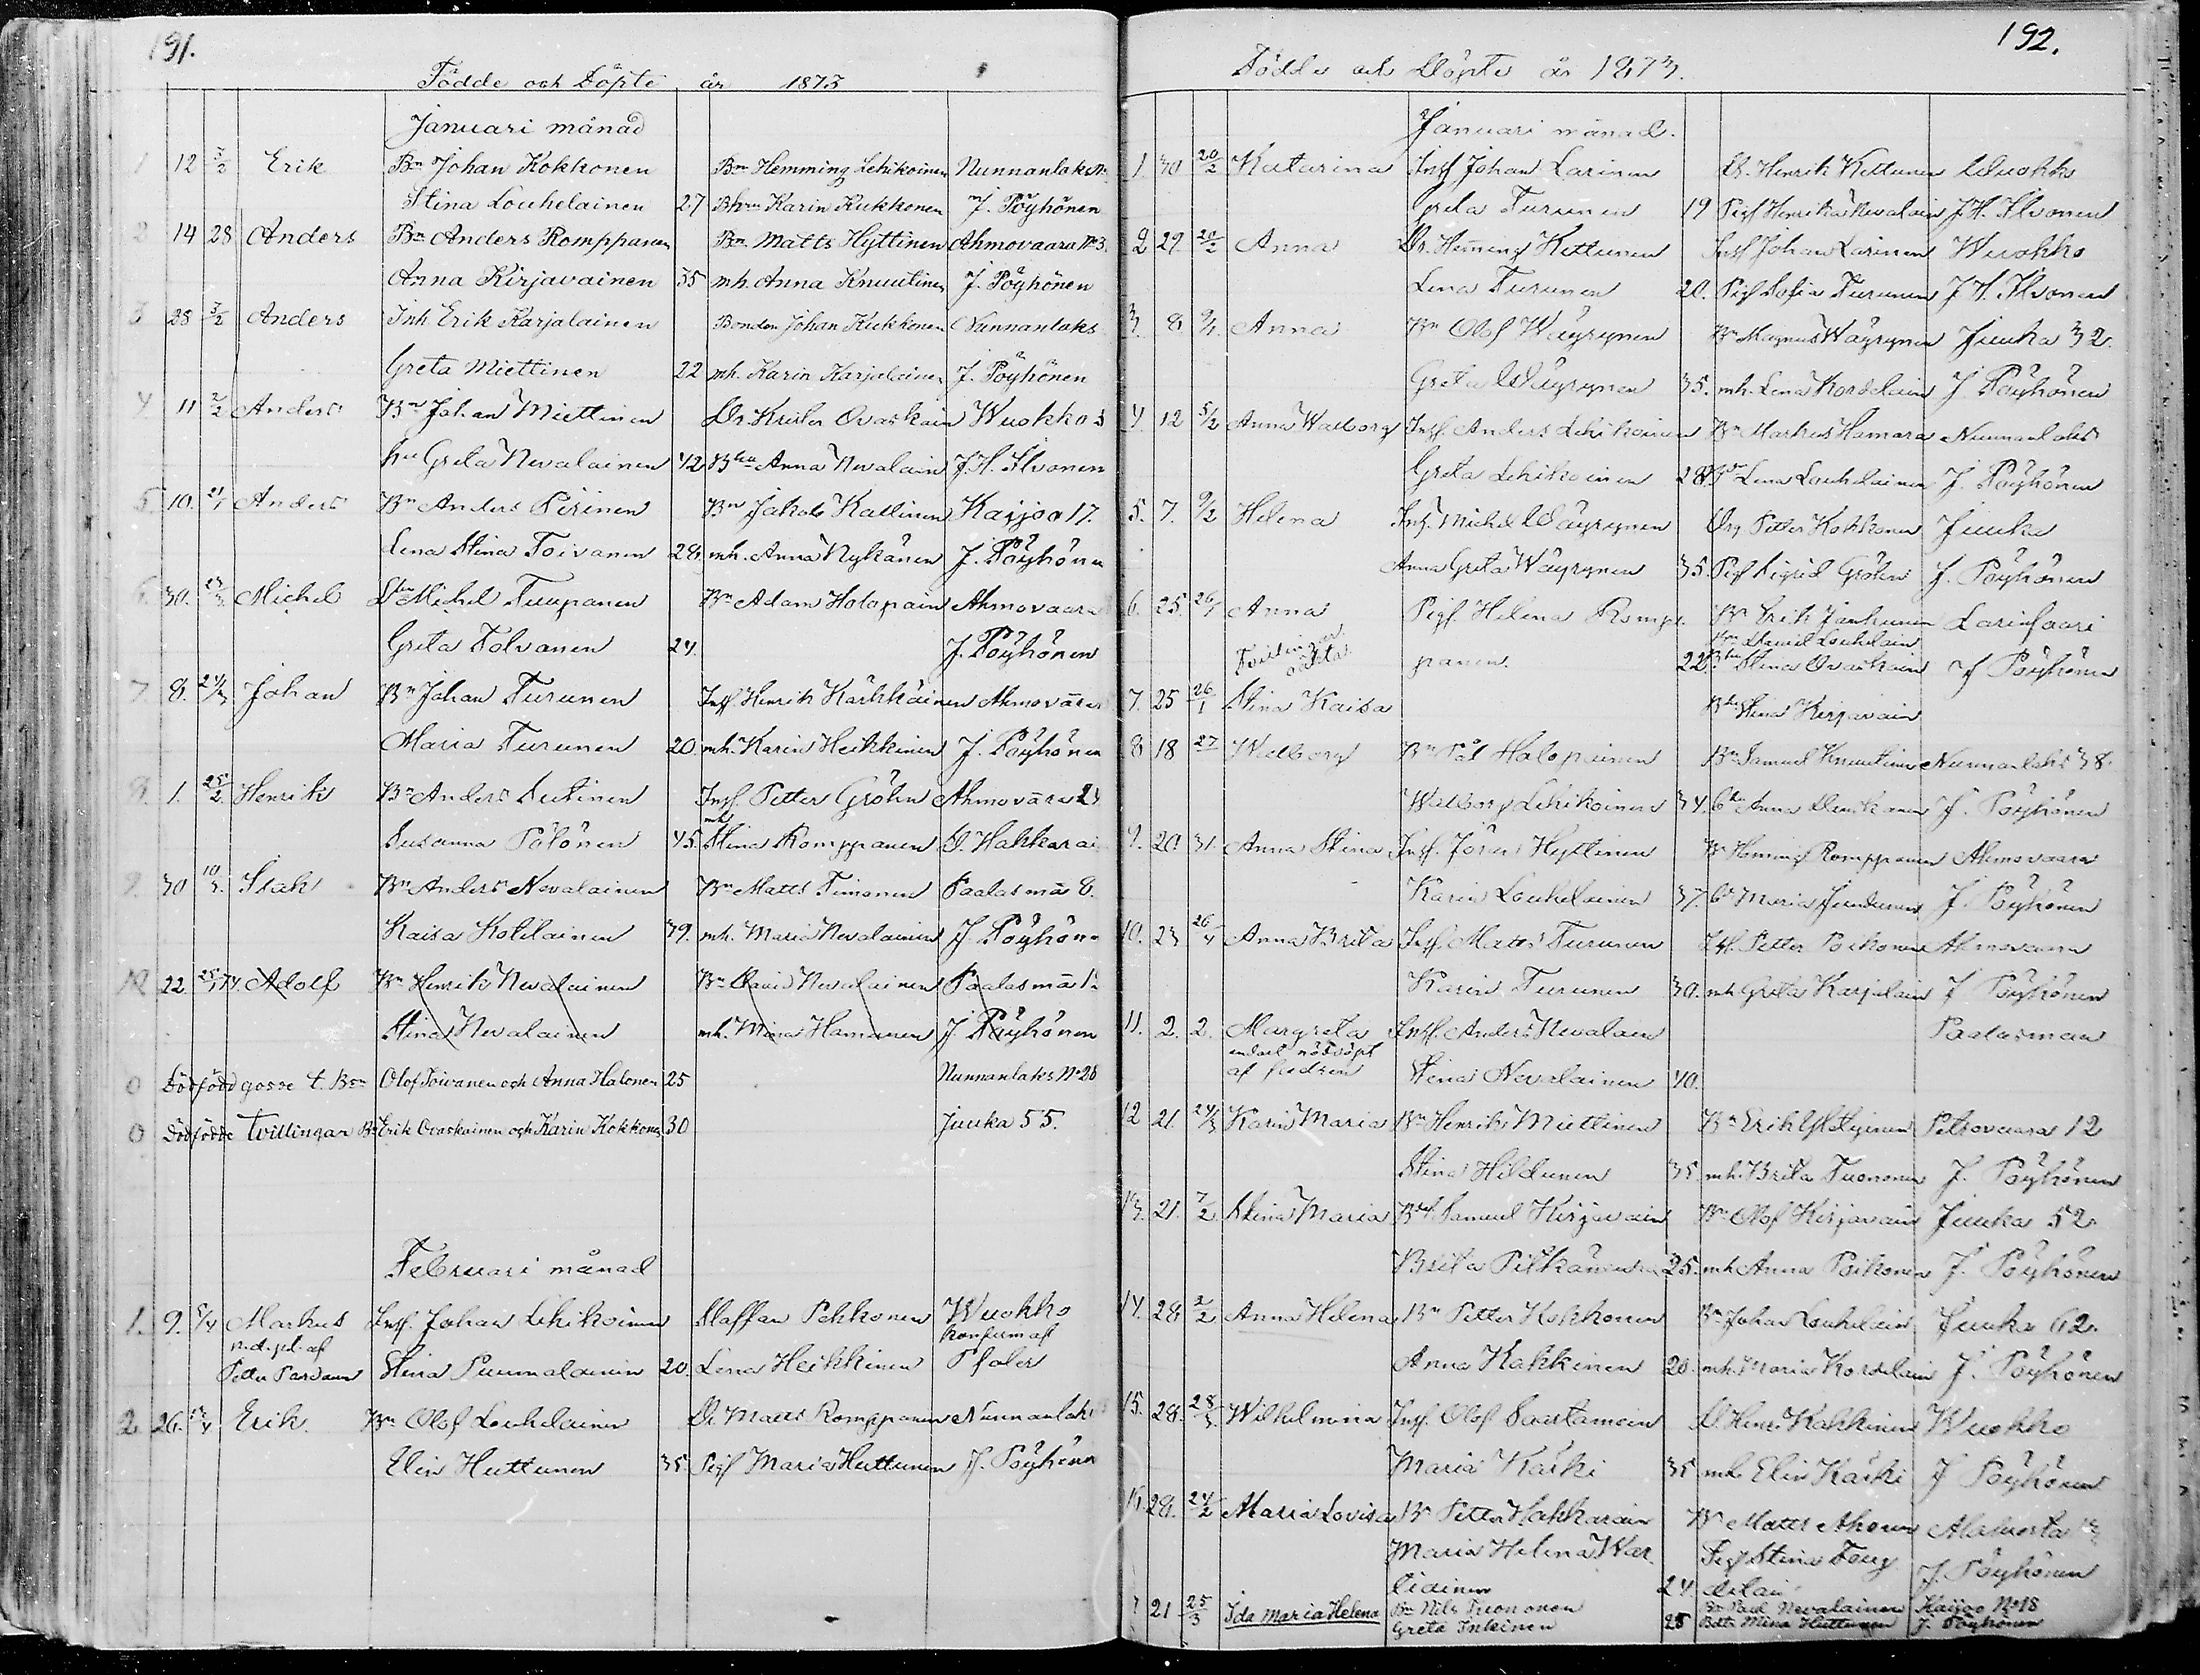 191.
Födde och Döpte år 1873
Januari månad
1 12 3/2 Erik Bn Johan Kokkonen Bn Hemming Lehikoinen Nunnanlaks
Stina Louhelainen 27 Bhrn Karin Kukkonen J. Pöyhönen
2 14 28 Anders Bn Anders Romppanen Bn Matts Hyttinen Ahmovaara No 3.
Anna Kirjavainen 35 mh. Anna Knuutinen J. Pöyhönen
3 28 3/2 Anders Inh Erik Karjalainen Bonden Johan Kukkonen Nunnanlaks
Greta Miettinen 22 mh. Karin Karjalainen J. Pöyhönen
4 11 2/2 Anders Bn Johan Miettinen Dr. Krister Ovaskain Wuokko 3
hu Greta Nevalainen 42 Bhu Anna Nevalain J. H. Ilvonen
5 10. 21/1 Anders Bn Anders Pirinen Bn Jakob Kallinen Kajoo 17.
Lena Stina Toivanen 28. mh. Anna Nykänen J. Pöyhönen
6. 30. Michel Michel Tuupanen Bn Adam Holopain Ahmovaara
Greta Tolvanen 24. J. Pöyhönen
7 8. 24/3 Johan Bn Johan Turunen Inh Henrik Kärkkäinen Ahmovaara
Maria Turunen 20. mh. Karin Heikkinen J. Pöyhönen
8. 1. 25/2 Henrik Bn Anders Sutinen Inh. Petter Gröhn Ahmovaara 24
Susanna Pölönen 45. mh Stina Romppanen O. Hakkarai
9. 30 10/3. Isak Bn Anders Nevalainen Bn Matts Timonen Paalasmä 8.
Kaisa Kotilainen 39. mh. Maria Nevalainen J. Pöyhönen
10 22. Adolf Bn Henrik Nevalainen Bn David Nevalainen Paalasmä
Stina Nevalainen mh. Mina Hamunen J. Pöyhönen
0 Dödfödd gosse t. Bn Olof Toivanen och Anna Halonen 25 Nunnanlaks No 28
0 Dödfödde tvillingar Bn Erik Ovaskainen och Karin Kokkonen 30 Juuka 55.
Februari månad
1. 9. 5/4 Markus Inh. Johan Lehikoinen Staffan Pekkonen Wuokko
n.d. af konferm af
Petter Stina Purmalainen 20. Lena Heikkinen Pfaler
2. 26. Erik. Bn Olof Louhelainen Dr Matts Romppanen Nunnanlaks
Elin Huttunen 35. Pig Maria Huttunen J. Pöyhönen
192.
Födde och Döpte år 1873.
Januari månad.
1. 30 20/2 Katarina Inh Johan Larinen Dr. Henrik Kettunen Wuokko
Greta Turunen 19 Pig Henrika Nevalain J. H. Ilvonen
2 29. 20/2 Anna Dr. Heming Kettunen Inh Johan Larinen Wuokko
Lena Turunen 20. Pig Sofia Turunen J. H. Ilvonen
3. 8. 9/1. Anna Bn Olof Wäyrynen Bn Magnus Wäyrynen Juuka 32.
Greta Wäyrynen 35. mh. Lena Korselain J. Pöyhönen
4. 12 5/2 Anna Walborg Inh. Anders Lehikoinen Bn Markus Hamara Nunnanlaks
Greta Lehikoinen 28. Lena Louhelainen J. Pöyhönen
5. 7. 9/2 Helena Inh. Michel Wäyrynen Drg Petter Kokkonen Juuka
Anna Greta Wäyrynen 35. Pig Sigrid Gröhn J. Pöyhönen
6. 25. 26/1 Anna Pig. Helena Romp- Bn Erik Jankunen Larinsaari
Tvillingar oäkta Bn Daniel Louhelain
panen. 22. Bhu Stina Ovaskain J Pöyhönen
7. 25 26/1 Stina Kaisa Bhu Stina Kirjavain
8 18 27 Walborg Bn Pål Halopainen Bn Samuel Knuutinen Nunnanlaks 38.
Walborg Lehikoinen 34. Anna J. Pöyhönen
9. 20. 31. Anna Stina Inh. Jöran Hyttinen Bn Heming Romppanen Ahmovaara
Karin Louhelainen 37. Maria J. Pöyhönen
10. 23 26/4 Anna Brita Inh. Matts Turunen Inh. Petter Poikonen Ahmovaara
Karin Turunen 30. mh Greta Karjalain J Pöyhönen
11. 2. 2. Margreta Inh. Anders Nevalain Paalasmaa
endast nöddöpt
af fadren Stina Nevalainen 40.
12 21. 24/3 Karin Maria Bn Henrik Miettinen Bn Erik Petrovaara 12
Stina Hildunen 35. mh. Brita Tuononen J. Pöyhönen
13. 21. 7/2 Stina Maria Bn Samuel Kirjavain Bn Olof Kirjavain Juuka 52.
Brita Pitkänen 25. mh Anna Poikonen J. Pöyhönen
14. 28 2/2 Anna Helena Bn Petter Kokkonen Bn Johan Louhelain Juuka 62.
Anna Kakkinen 20. mh. Maria Korselain J. Pöyhönen
15. 28. 28/3 Wilhelmina Inh. Olof Saastamoin D. Henr Kakkinen Wuokko
Maria Kärki 35 mh Elin Kärki J Pöyhönen
16. 28. 24/2 Maria Lovisa Bn Petter Hakkarain Bn Matts Ahonen Alaluosta
Maria Helena War- Pig Stina Torg J. Pöyhönen
tiainen 24. delain
21 25/3 Ida Maria Helena Bn Nils Tuononen Bn Paul Nevalainen Kajoo No 18
Greta Inkinen 25 Mina Huttunen J. Pöyhönen